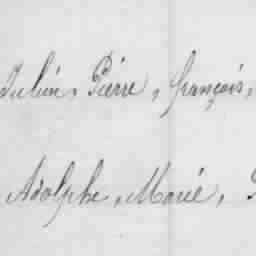 Julien, Pierre, françois,
Adolphe, Marie,